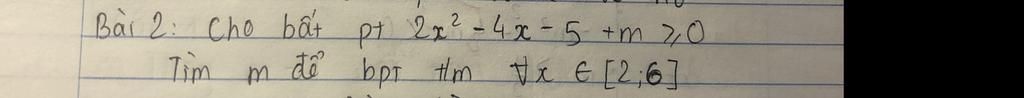 Bài 2: Cho bất pt 2x² - 4x - 5 + m ≥ 0
Tìm m để bpt tm ∀x ∈ [2;6]